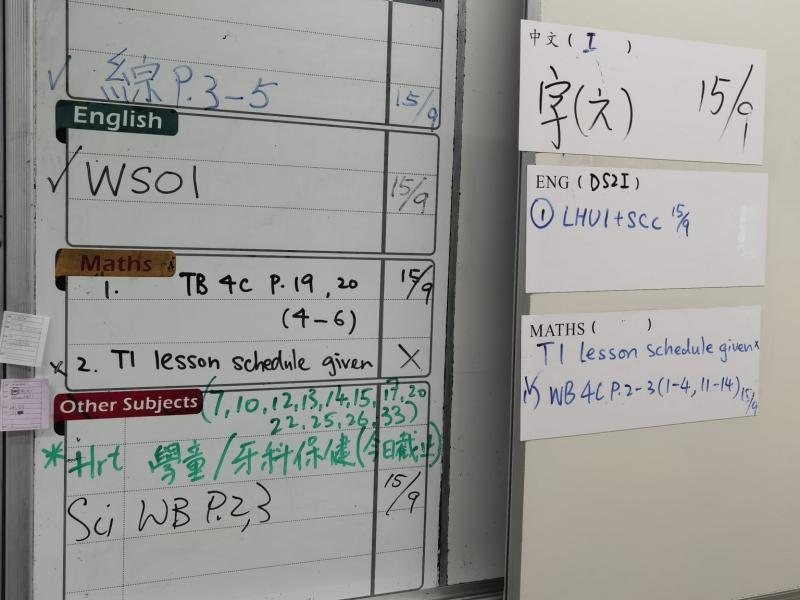 ✓ 綜 P.3-5 15/9
English
✓ WS01 15/9
Maths
1. TB 4C P.19,20 15/9
(4-6)
x 2. TI lesson schedule given X
Other Subjects (7,10,12,13,14,15,17,20
22,25,26,33)
* Hrt 學童/牙科保健(今日截止)
Sci WB P.2,3 15/9
中文 ( I )
字(六) 15/9
ENG (DS2I)
① LHU1+SCC 15/9
MATHS ( )
TI lesson schedule given x
WB 4C P.2-3 (1-4, 11-14) 15/9